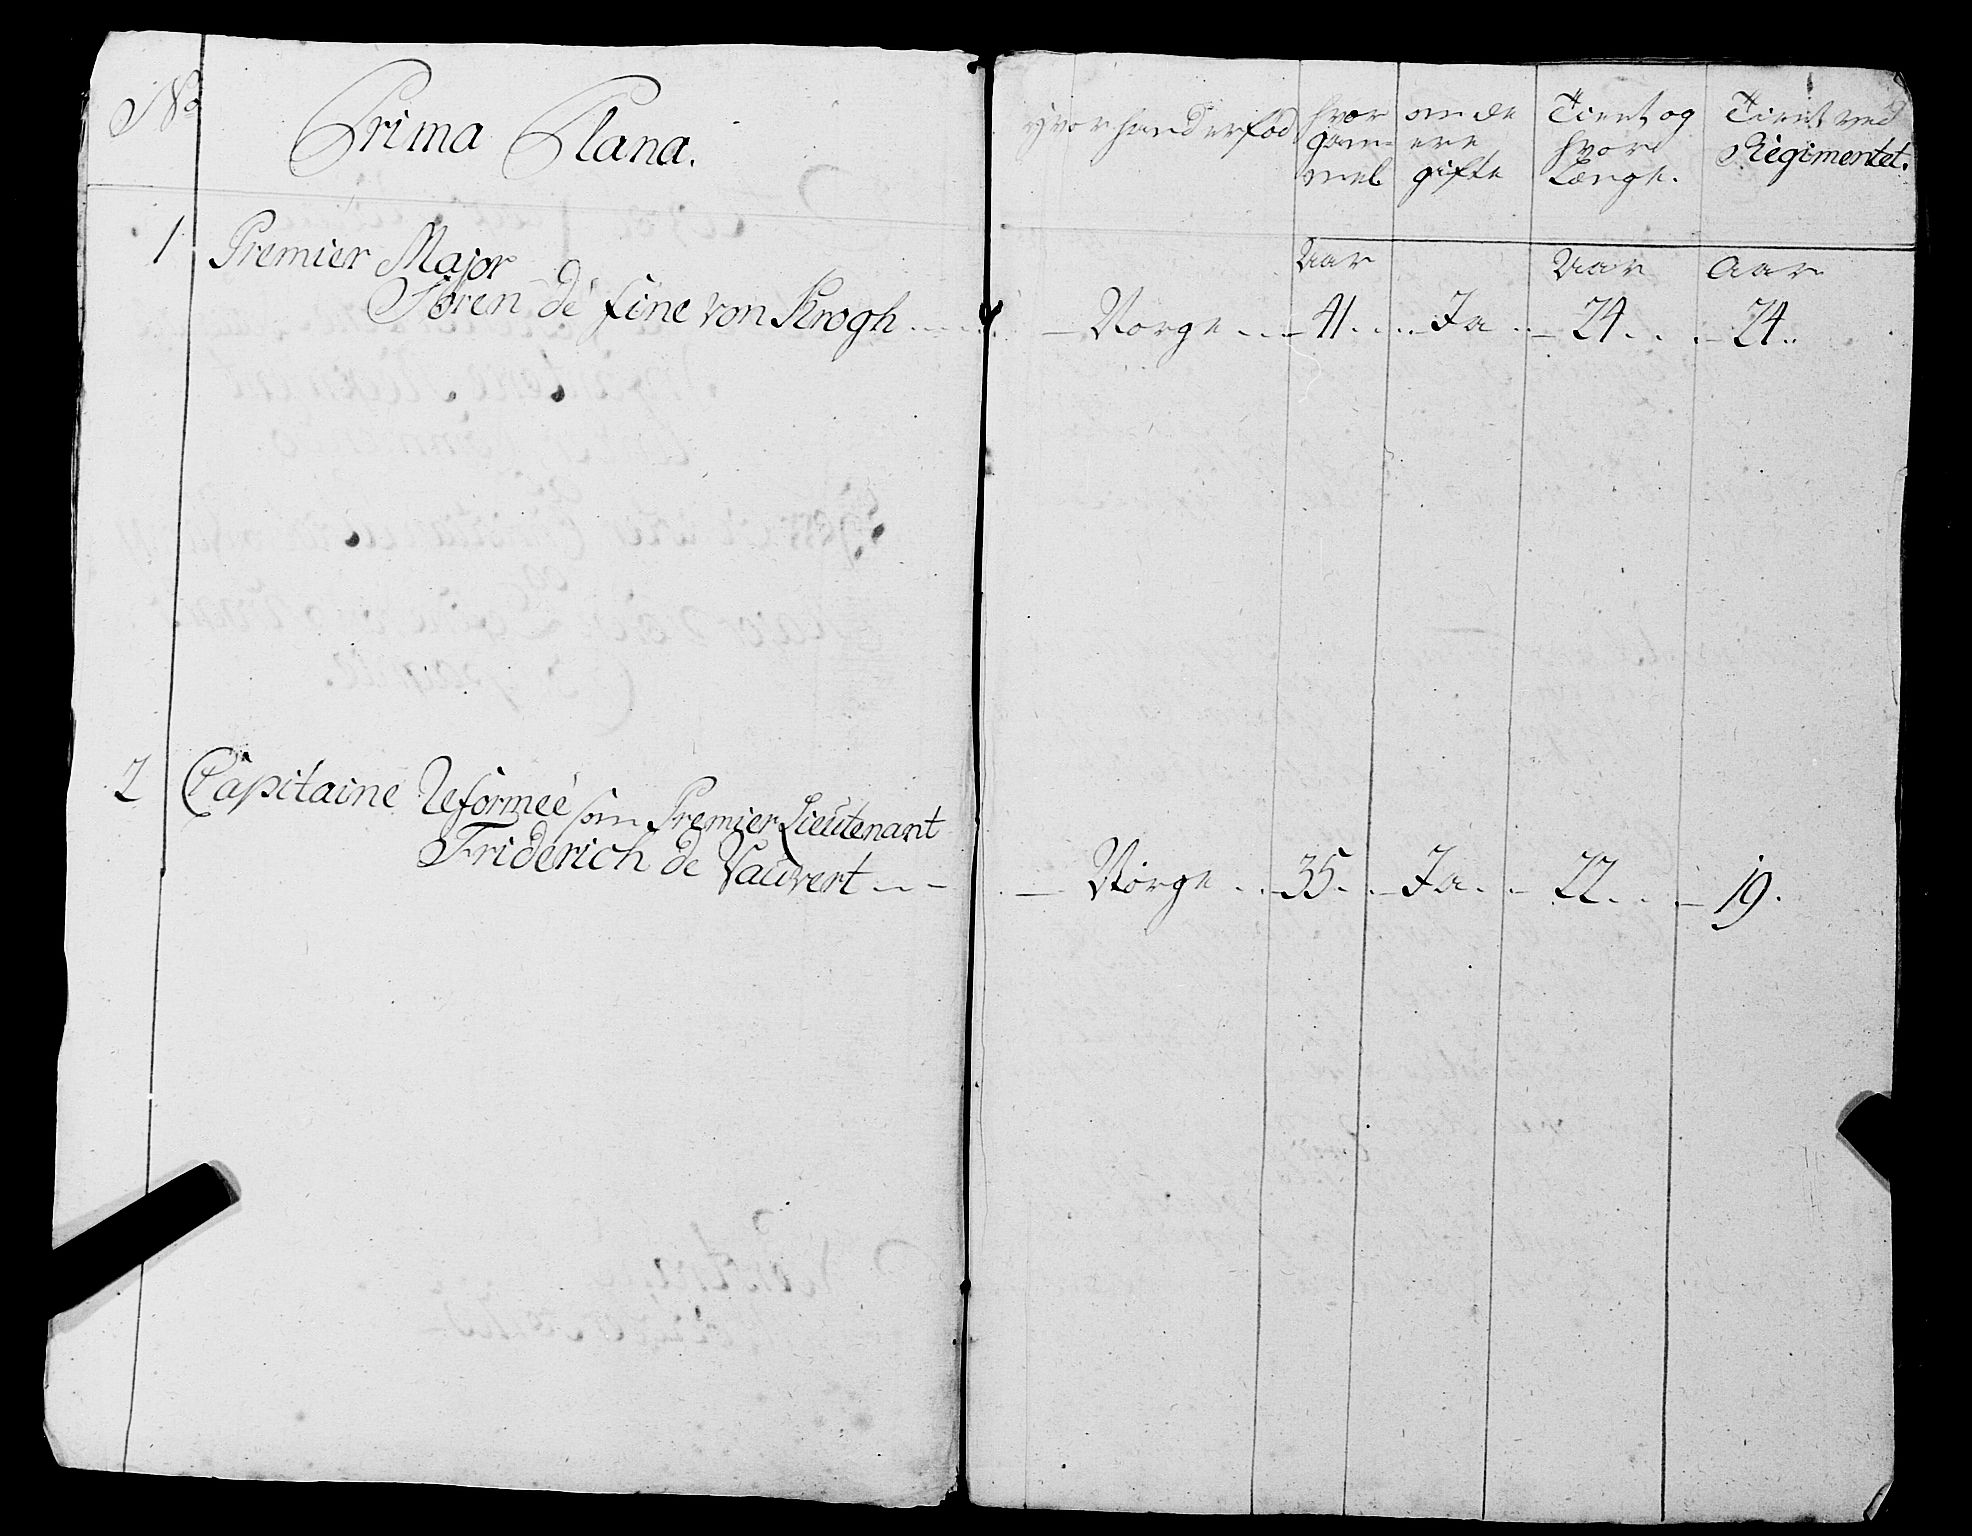 No Prima Plana.
Hvor hand er fød
hvor gam= mel
om de ere gifte
Tient og hvor Længe.
Tient ved Regimentet.
Aar Aar Aar
1 Premier Major
Sören de fine von Krogh .... — Norge .. — 41. ... Ja .. — 24. .. — 24..
2 Capitaine Reformeé som Premier Lieutenant
Friderich de Vauvert .. — — Norge .. — 35. . — Ja. . — 22. .. — 19.